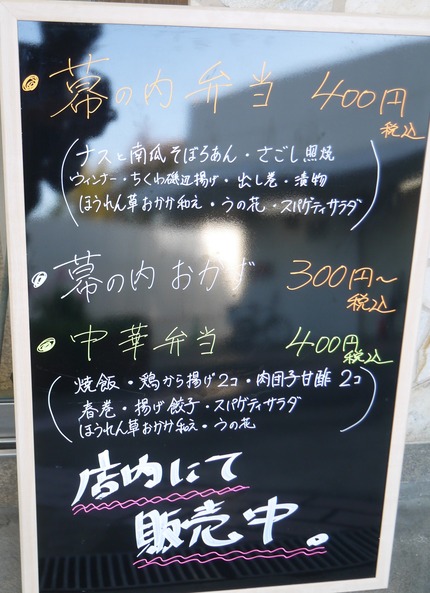 ・幕の内弁当 400円
税込
(ナスと南瓜そぼろあん・さごし照焼
ウィンナー・ちくわ磯辺揚げ・出し巻・漬物
ほうれん草おかか和え・うの花・スパゲティサラダ)
・幕の内おかず 300円～
税込
・中華弁当 400円
税込
(焼飯・鶏から揚げ2コ・肉団子甘酢2コ
春巻・揚げ餃子・スパゲティサラダ
ほうれん草おかか和え・うの花)
店内にて
販売中。